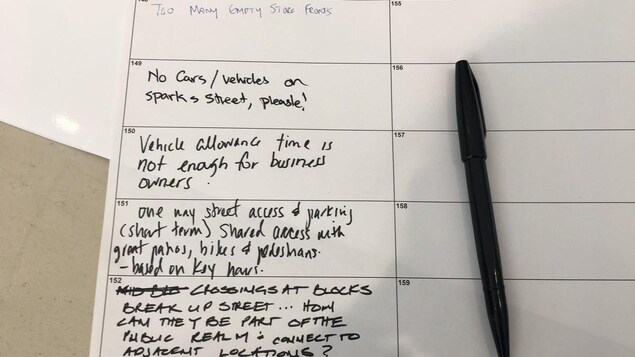 Too Many Empty Store Fronts
155
149
No Cars/vehicles on
sparks street, please!
156
150
Vehicle allowance time is
not enough for business
owners.
157
151
one way street access & parking
(short term) Shared access with
great patios, bikes & pedestrians.
- based on key hours.
158
152
CROSSINGS AT BLOCKS
BREAK UP STREET... HOW
CAN THEY BE PART OF THE
PUBLIC REALM & CONNECT TO
ADJACENT LOCATIONS?
159